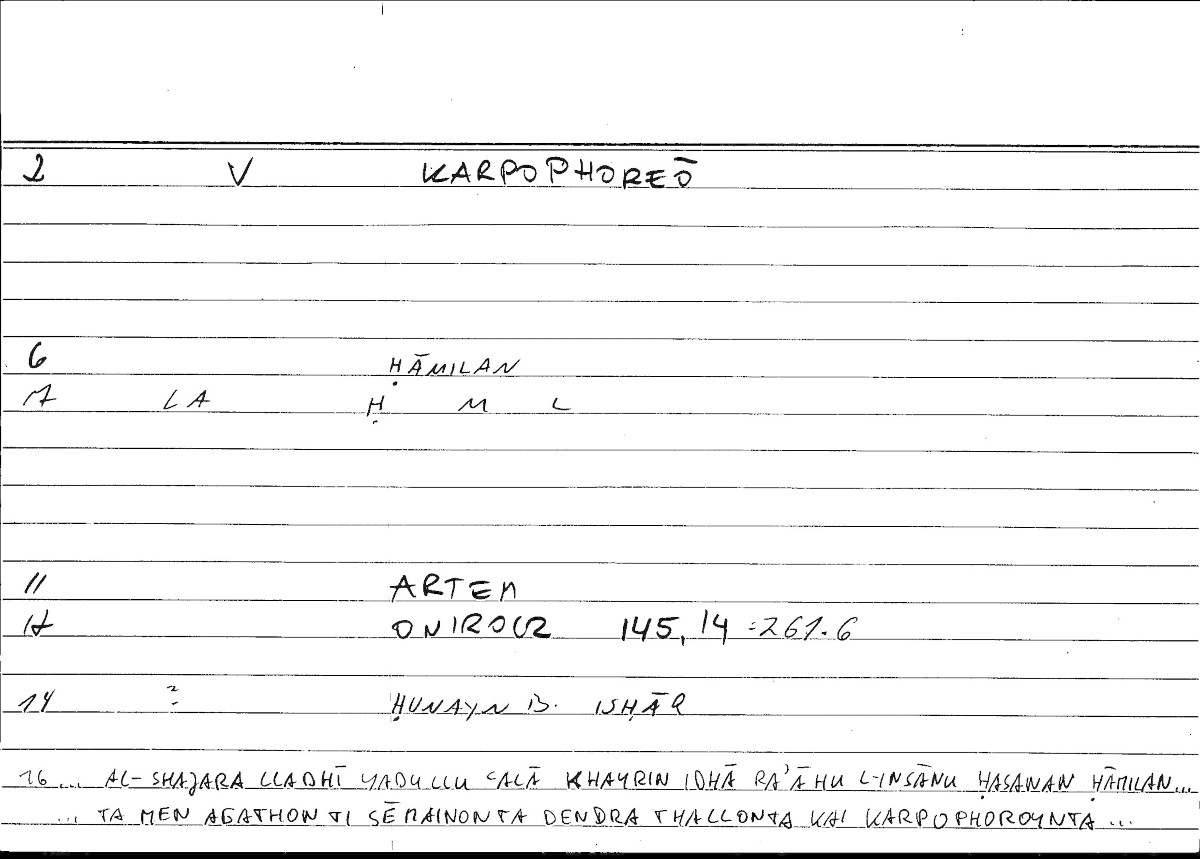 2 V KARPOPHOREŌ
6 ḤĀMILAN
7 LA Ḥ M L
11 ARTEM
12 ONIROCR 145,14 =261.6
14 ? ḤUNAYN B. ISḤĀQ
16 ... AL-SHAJARA LLADHĪ YADULLU ʿALĀ KHAYRIN IDHĀ RA'ĀHU L-INSĀNU ḤASANAN ḤĀMILAN...
... TA MEN AGATHON TI SĒMAINONTA DENDRA THALLONTA KAI KARPOPHOROYNTA ...